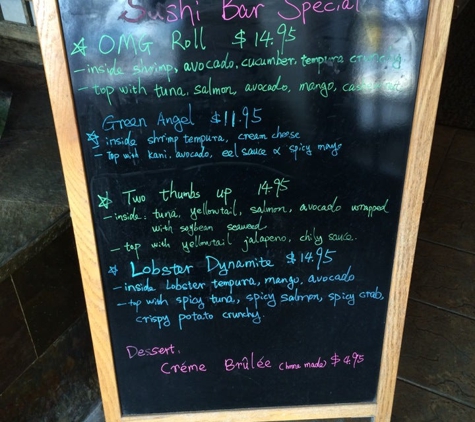 Sushi Bar Special
OMG Roll $14.95
-inside shrimp, avocado, cucumber, tempura
-top with tuna, salmon, avocado, mango,
Green Angel $11.95
inside shrimp tempura, cream cheese
-Top with kani, avocado, eel sauce & spicy mayo
Two thumbs up 14.95
-inside: tuna, yellowtail, salmon, avocado wrapped
with soybean seaweed
-top with yellowtail jalapeno, chily sauce.
Lobster Dynamite $14.95
-inside Lobster tempura, mango, avocado
-top with spicy tuna, spicy salmon, spicy crab,
crispy potato crunchy.
Dessert.
Créme Brûlée (home made) $4.95